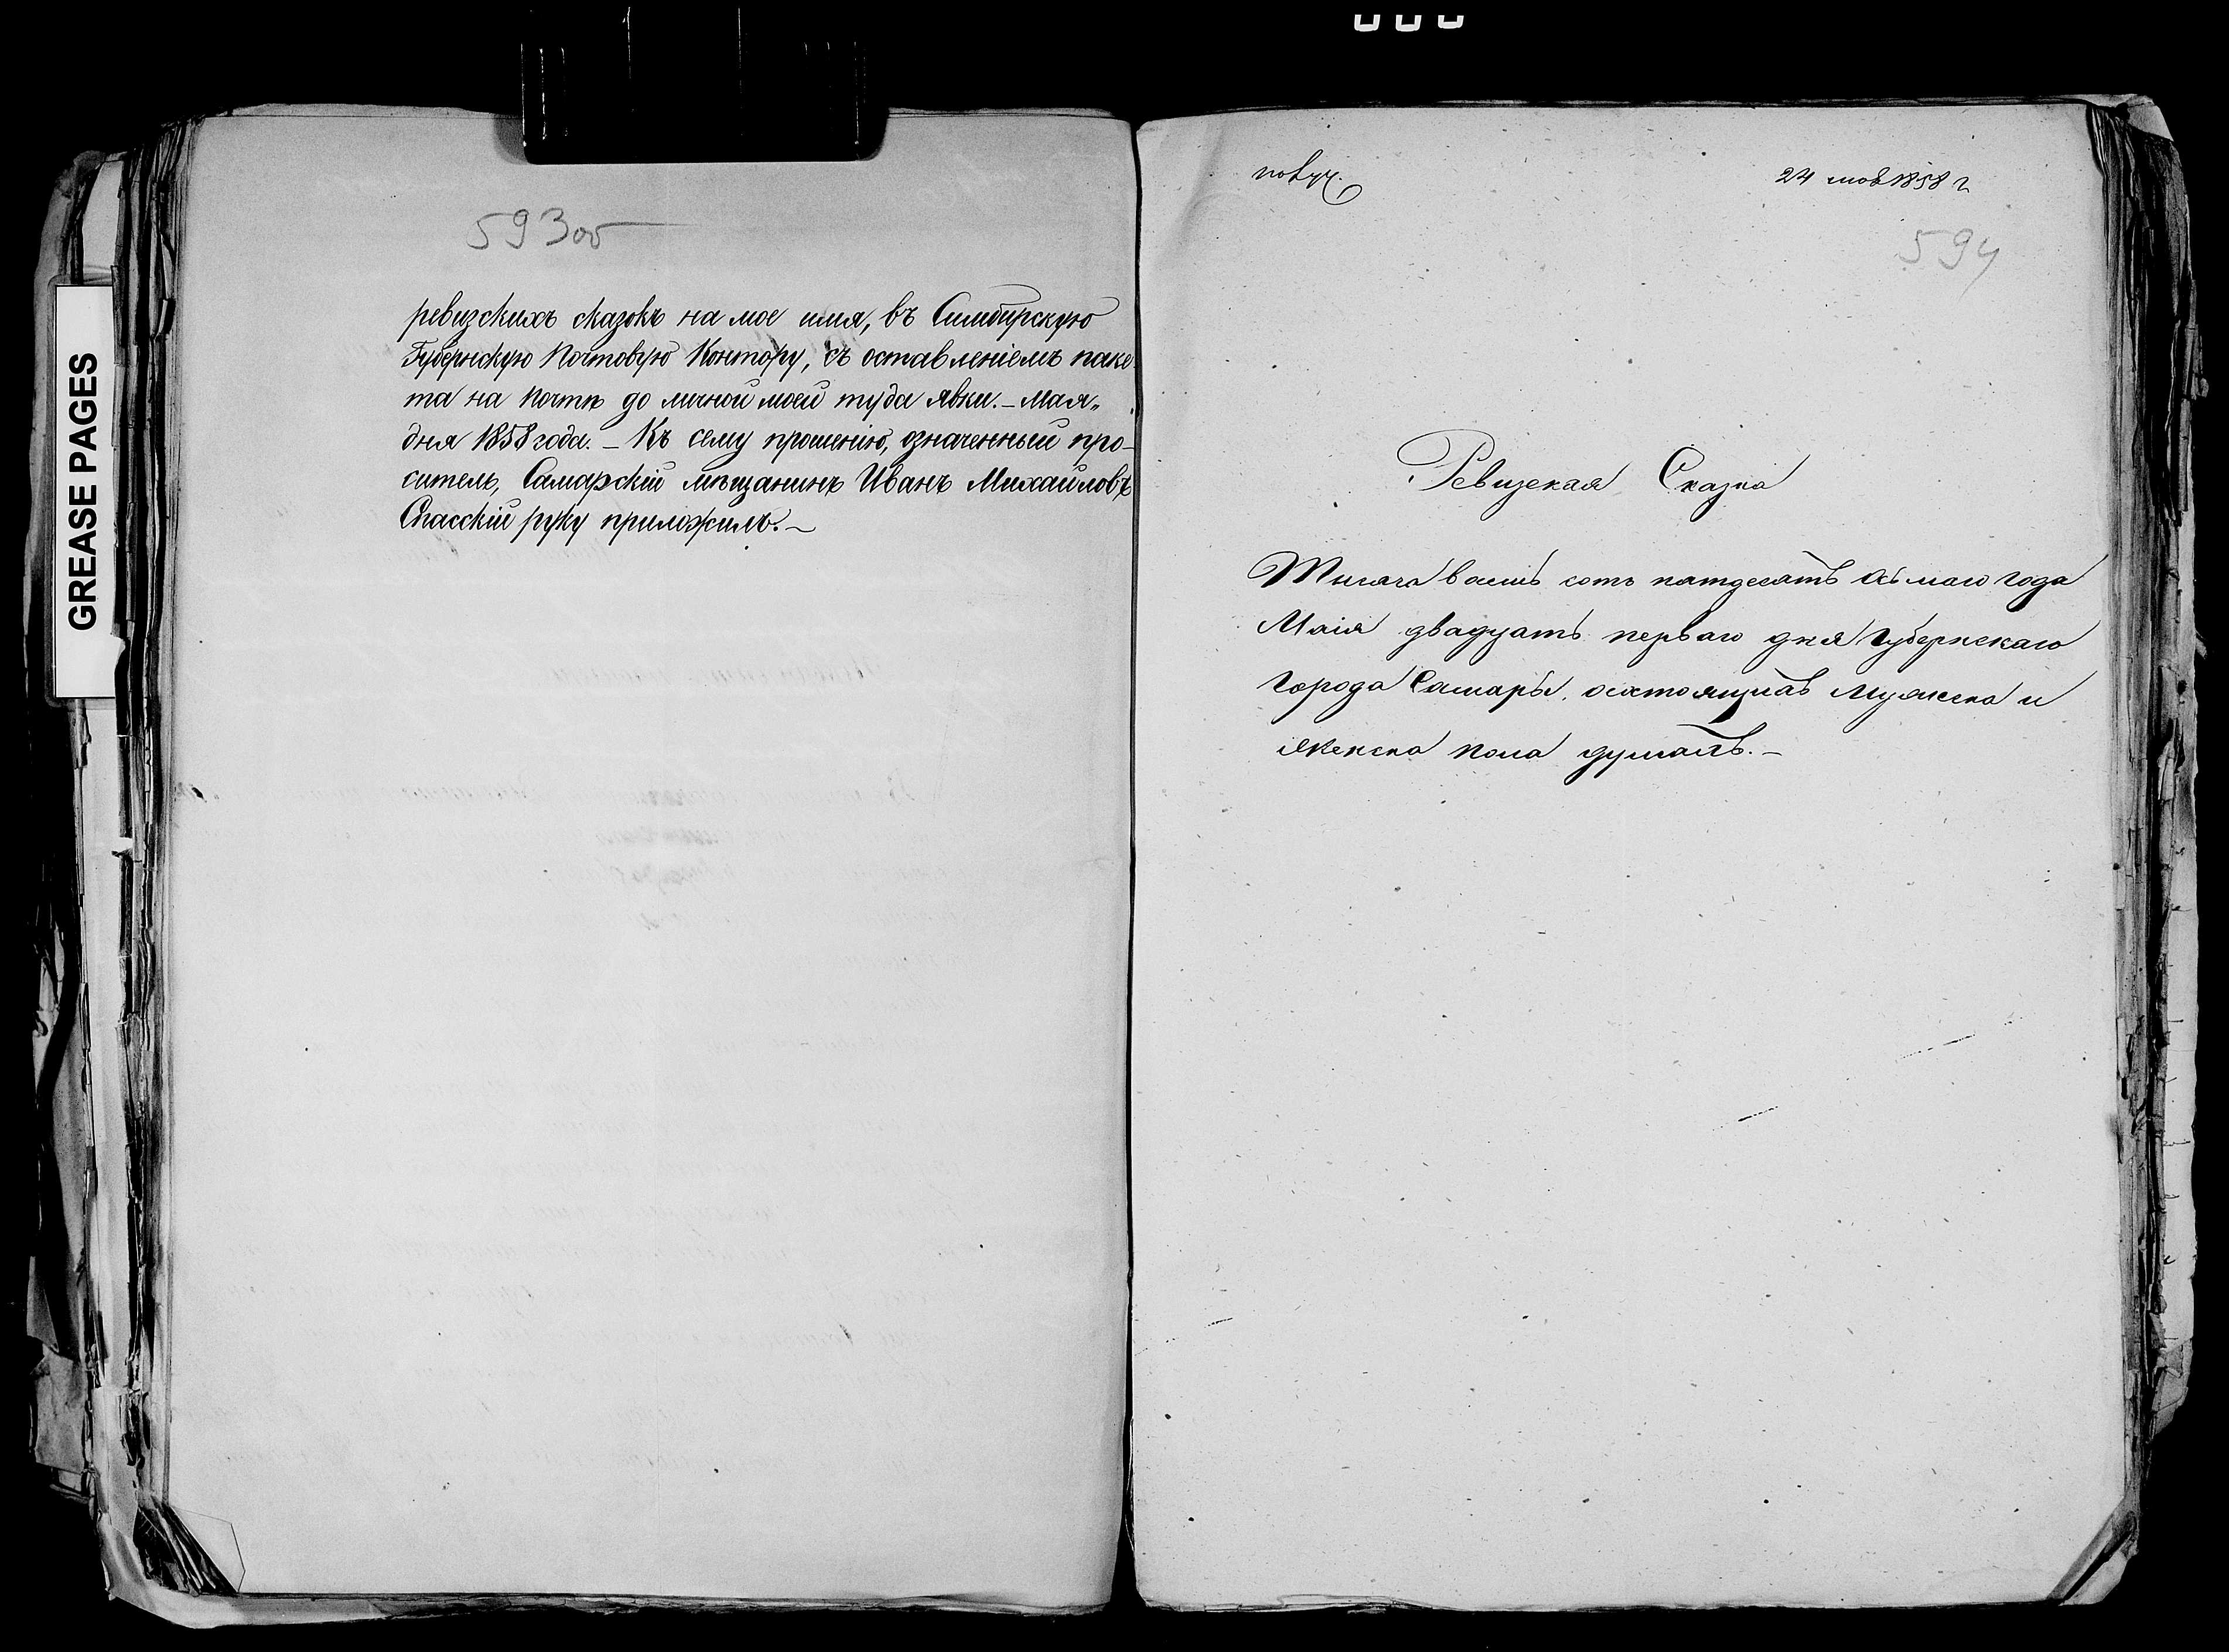 GREASE PAGES
593об
ревизскихъ сказокъ на мое имя, въ Симбирскую
Губернскую Почтовую Контору, съ оставленіемъ паке-
та на почтѣ до личной моей туда явки. – Мая „
дня 1858 года. – Къ сему прошенію, означенный про-
ситель, Самарскій мѣщанинъ Иванъ Михайловъ
Спасскій руку приложилъ. –
24 мая 1858 г
594
Ревизская Сказка
Тысяча восемь сотъ пятдесятъ осьмаго года
Маія двадцать перваго дня Губернскаго
города Самары, состоящихъ мужеска и
женска пола душахъ. –